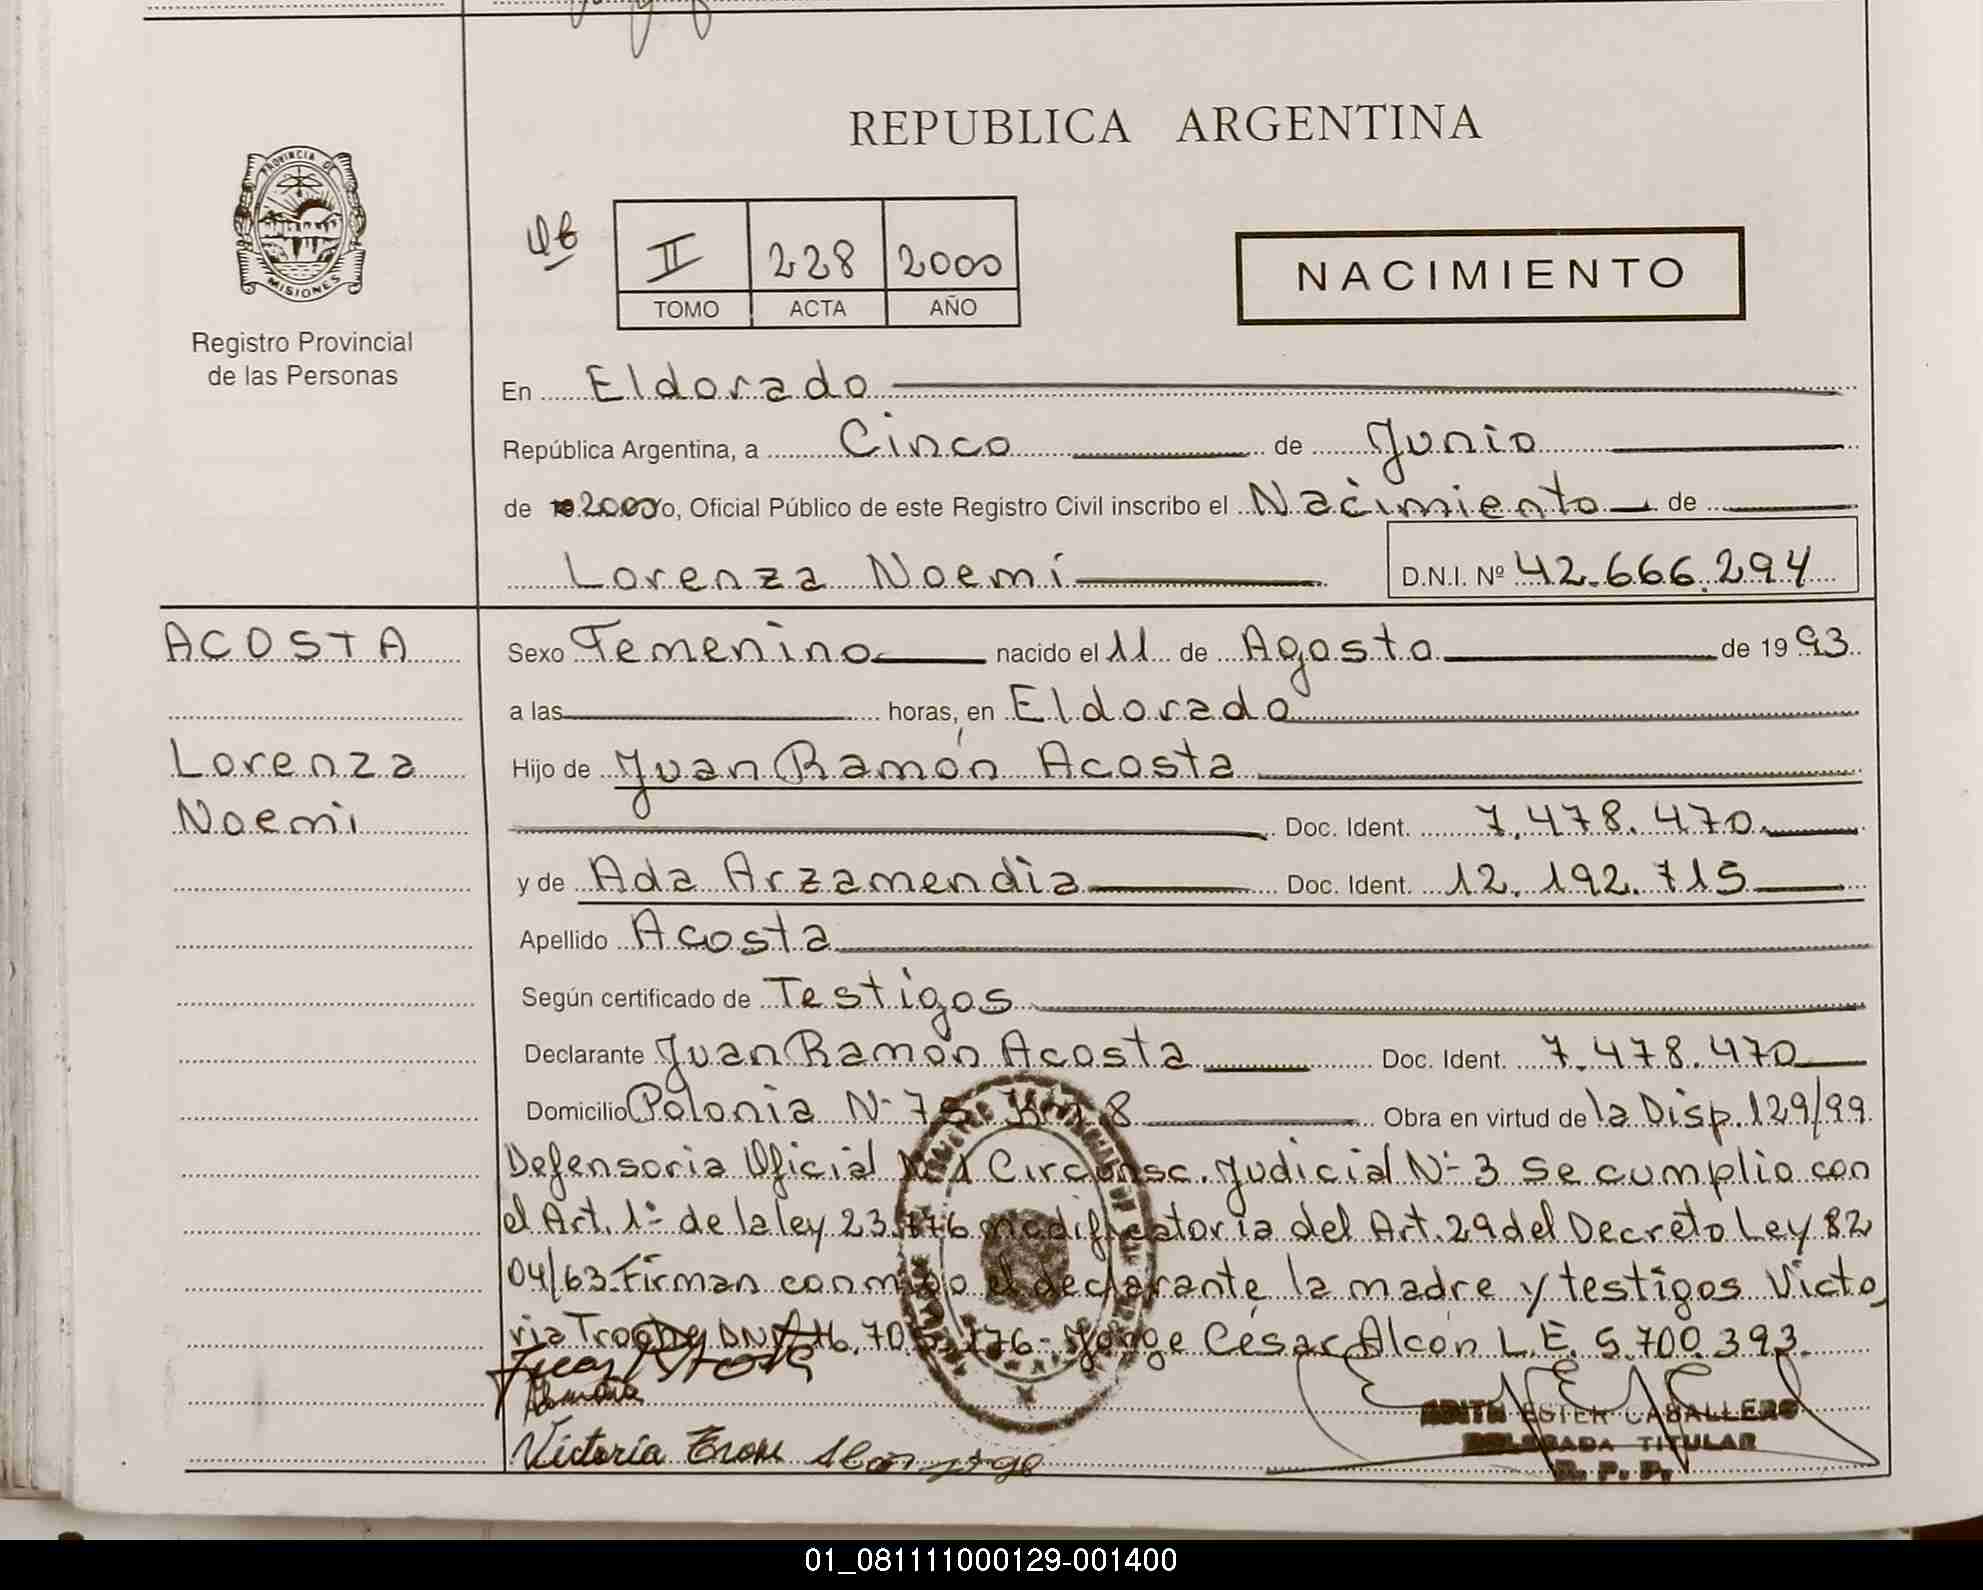 REPUBLICA ARGENTINA
PROVINCIA DE
MISIONES
Registro Provincial
de las Personas
II 228 2000
TOMO ACTA AÑO
NACIMIENTO
En Eldorado
República Argentina, a Cinco de Junio
de 2000 yo, Oficial Público de este Registro Civil inscribo el Nacimiento de
Lorenza Noemi D.N.I. Nº 42.666.294
ACOSTA
Lorenza
Noemi
Sexo Femenino nacido el 11 de Agosto de 19 93
a las horas, en Eldorado
Hijo de Juan Ramón Acosta
Doc. Ident. 7.478.470
y de Ada Arzamendia Doc. Ident. 12.192.715
Apellido Acosta
Según certificado de Testigos
Declarante Juan Ramón Acosta Doc. Ident. 7.478.470
Domicilio Polonia Nº 75 Km 8 Obra en virtud de la Disp. 129/99
Defensoria Oficial Nº 1 Circunsc. Judicial Nº 3 Se cumplio con
el Art. 1º de la ley 23.776 modificatoria del Art. 29 del Decreto Ley 82
04/63. Firman conmigo el declarante, la madre y testigos Victo
ria DNI 705.176 - Jorge César Alcón L.E. 5.700.393.
Victoria
EDITH ESTER CABALLERO
DELEGADA TITULAR
R. P. P.
01_081111000129-001400